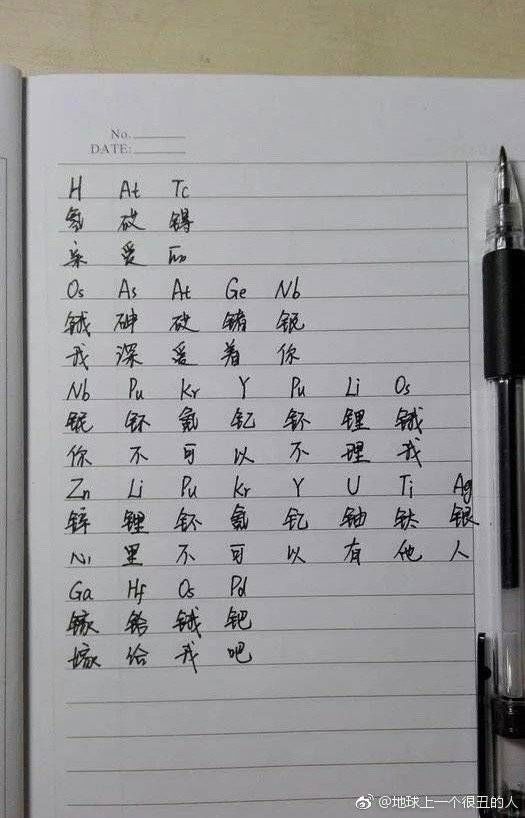 No.
DATE:
H At Tc
氢 砹 锝
亲 爱 的
Os As At Ge Nb
锇 砷 砹 锗 铌
我 深 爱 着 你
Nb Pu Kr Y Pu Li Os
铌 钚 氪 钇 钚 锂 锇
你 不 可 以 不 理 我
Zn Li Pu Kr Y U Ti Ag
锌 锂 钚 氪 钇 铀 钛 银
心 里 不 可 以 有 他 人
Ga Hf Os Pd
镓 铪 锇 钯
嫁 给 我 吧
@地球上一个很丑的人